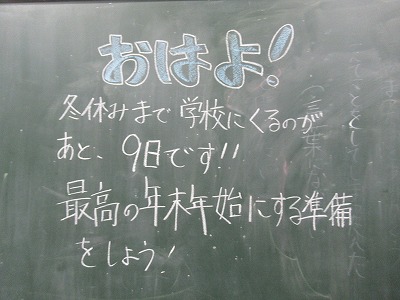 おはよ!
冬休みまで学校にくるのが
あと、9日です!!
最高の年末年始にする準備
をしよう!